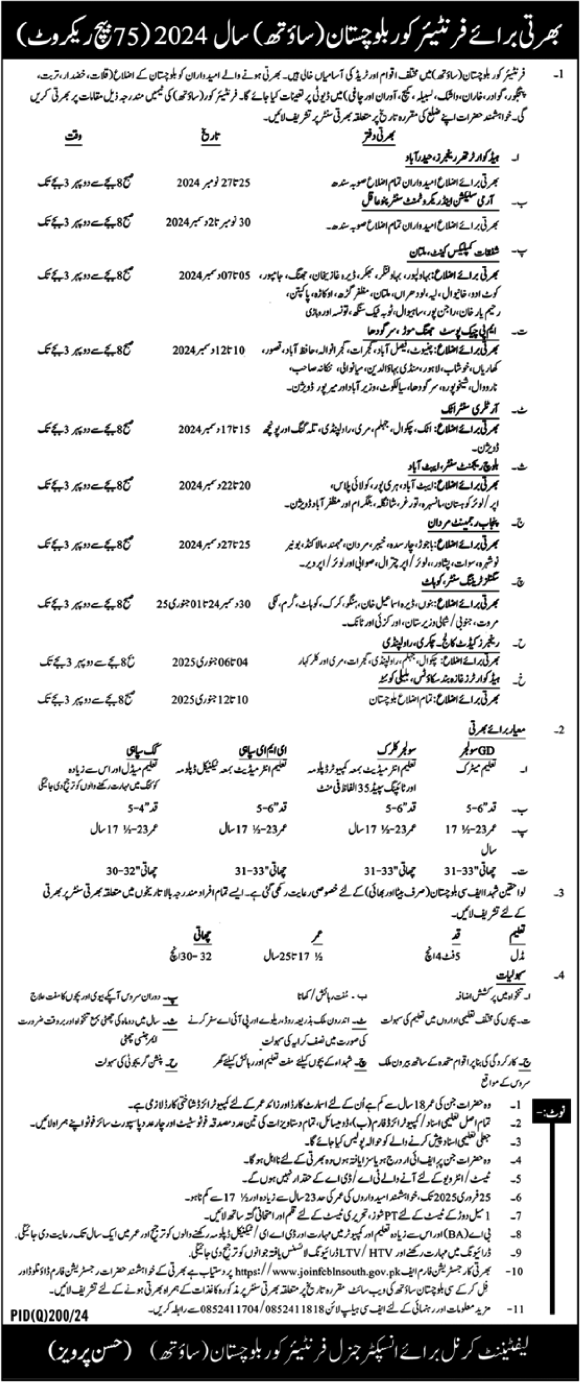 بھرتی برائے فرنٹیئر کور بلوچستان (ساؤتھ) سال 2024 (75 بیچ ریکروٹ)
1- فرنٹیئر کور بلوچستان (ساؤتھ) میں مختلف اقوام اور ٹریڈ کی آسامیاں خالی ہیں۔ بھرتی ہونے والے امیدواران کو بلوچستان کے اضلاع (قلات، خضدار، تربت،
پنجگور، گوادر، خاران، واشک، لسبیلہ، کیچ، آوران اور چاغی) میں ڈیوٹی پر تعینات کیا جائے گا۔ فرنٹیئر کور (ساؤتھ) کی ٹیمیں مندرجہ ذیل مقامات پر بھرتی کریں
گی۔ خواہشمند حضرات اپنے ضلع کی مقررہ تاریخ پر متعلقہ بھرتی سنٹر پر تشریف لائیں۔
بھرتی دفتر تاریخ وقت
ا۔ ہیڈ کوارٹر تھر رینجرز، حیدرآباد
بھرتی برائے اضلاع امیدواران تمام اضلاع صوبہ سندھ 25 تا 27 نومبر 2024 صبح 8 بجے سے دوپہر 3 بجے تک
ب۔ آرمی سلیکشن اینڈ ریکروٹمنٹ سنٹر پنوعاقل
بھرتی برائے اضلاع امیدواران تمام اضلاع صوبہ سندھ۔ 30 نومبر تا 2 دسمبر 2024 صبح 8 بجے سے دوپہر 3 بجے تک
پ۔ شفقات کمپلیکس کینٹ، ملتان
بھرتی برائے اضلاع: بہاولپور، بہاولنگر، بھکر، ڈیرہ غازیخان، جھنگ، جامپور، 05 تا 07 دسمبر 2024 صبح 8 بجے سے دوپہر 3 بجے تک
کوٹ ادو، خانیوال، لیہ، لودھراں، ملتان، مظفر گڑھ، اوکاڑہ، پاکپتن،
رحیم یار خان، راجن پور، ساہیوال، ٹوبہ ٹیک سنگھ، تونسہ اور وہاڑی
ت۔ ایم پی چیک پوسٹ جھنگ موڑ، سرگودھا
بھرتی برائے اضلاع: چنیوٹ، فیصل آباد، گجرات، گجرانوالہ، حافظ آباد، قصور، 10 تا 12 دسمبر 2024 صبح 8 بجے سے دوپہر 3 بجے تک
کھاریاں، خوشاب، لاہور، منڈی بہاؤالدین، میانوالی، ننکانہ صاحب،
نارووال، شیخوپورہ، سرگودھا، سیالکوٹ، وزیرآباد اور میرپور ڈویژن۔
ٹ۔ آرٹلری سنٹر اٹک
بھرتی برائے اضلاع: اٹک، چکوال، جہلم، مری، راولپنڈی، تلہ گنگ اور پونچھ 15 تا 17 دسمبر 2024 صبح 8 بجے سے دوپہر 3 بجے تک
ڈویژن۔
ث۔ بلوچ رجمنٹ سنٹر، ایبٹ آباد
بھرتی برائے اضلاع: ایبٹ آباد، ہری پور، کولائی پلاس، 20 تا 22 دسمبر 2024 صبح 8 بجے سے دوپہر 3 بجے تک
اپر/لوئر کوہستان، مانسہرہ، تورغر، شانگلہ، بٹگرام اور مظفرآباد ڈویژن۔
ج۔ پنجاب رجمنٹ مردان
بھرتی برائے اضلاع: باجوڑ، چارسدہ، خیبر، مردان، مہمند، مالاکنڈ، بونیر 25 تا 27 دسمبر 2024 صبح 8 بجے سے دوپہر 3 بجے تک
نوشہرہ، سوات، پشاور، لوئر/اپر چترال، صوابی اور لوئر/اپر دیر۔
چ۔ سگنلز ٹریننگ سنٹر، کوہاٹ
بھرتی برائے اضلاع: بنوں، ڈیرہ اسماعیل خان، ہنگو، کرک، کوہاٹ، کرم، لکی 30 دسمبر 24 تا 01 جنوری 25 صبح 8 بجے سے دوپہر 3 بجے تک
مروت، جنوبی/شمالی وزیرستان، اورکزئی اور ٹانک۔
ح۔ رینجرز کیڈٹ کالج۔ چکری، راولپنڈی
بھرتی برائے اضلاع: چکوال، جہلم، راولپنڈی، گجرات، مری اور کلرکہار 04 تا 06 جنوری 2025 صبح 8 بجے سے دوپہر 3 بجے تک
خ۔ ہیڈ کوارٹرز غازہ بند سکاؤٹس، بلیلی کوئٹہ
بھرتی برائے اضلاع: تمام اضلاع بلوچستان 10 تا 12 جنوری 2025 صبح 8 بجے سے دوپہر 3 بجے تک
2- معیار برائے بھرتی
GD سولجر سولجر کلرک ای ایم ای سپاہی کک سپاہی
ا۔ تعلیم میٹرک تعلیم انٹرمیڈیٹ بمعہ کمپیوٹر ڈپلومہ تعلیم انٹرمیڈیٹ بمعہ ٹیکنیکل ڈپلومہ تعلیم مڈل اور اس سے زیادہ
اور ٹائپنگ سپیڈ 35 الفاظ فی منٹ کوکنگ میں مہارت رکھنے والوں کو ترجیح دی جائیگی
ب۔ قد "6-5 قد "6-5 قد "6-5 قد "4-5
پ۔ عمر 23-½ 17 عمر 23-½ 17 سال عمر 23-½ 17 سال عمر 23-½ 17 سال
سال
ت۔ چھاتی "33-31 چھاتی "33-31 چھاتی "33-31 چھاتی "32-30
3- لواحقین شہدا ایف سی بلوچستان (صرف بیٹا اور بھائی) کے لئے خصوصی رعایت رکھی گئی ہے۔ ایسے تمام افراد مندرجہ بالا تاریخوں میں متعلقہ بھرتی سنٹر پر بھرتی
کے لئے تشریف لائیں۔
تعلیم قد عمر چھاتی
مڈل 5 فٹ 4 انچ ½ 17 تا 25 سال 32-30 انچ
4- سہولیات
ا۔ تنخواہ میں پرکشش اضافہ ب۔ مفت رہائش/کھانا پ۔ دوران سروس آپکے بیوی اور بچوں کا مفت علاج
ت۔ بچوں کی مختلف تعلیمی اداروں میں تعلیم کی سہولت ٹ۔ اندرون ملک بذریعہ روڈ، ریلوے اور پی آئی اے سفر کرنے ث۔ سال میں دو ماہ کی چھٹی بمع تنخواہ اور بروقت ضرورت
کی صورت میں نصف کرایہ کی سہولت ایمرجنسی چھٹی
ج۔ کارکردگی کی بنا پر اقوام متحدہ کے ساتھ بیرون ملک چ۔ شہداء کے بچوں کیلئے مفت تعلیم اور رہائش کیلئے گھر ح۔ پنشن گریجوٹی کی سہولت
سروس کے مواقع
نوٹ:-
1- وہ حضرات جن کی عمر 18 سال سے کم ہے اُن کے لئے اسمارٹ کارڈ اور زائد عمر کے لئے کمپیوٹرائزڈ شناختی کارڈ لازمی ہے۔
2- تمام اصل تعلیمی اسناد/کمپیوٹرائزڈ فارم (ب)، ڈومیسائل، تمام دستاویزات کی تین عدد مصدقہ فوٹوسٹیٹ اور چار عدد پاسپورٹ سائز فوٹو اپنے ہمراہ لائیں۔
3- جعلی تعلیمی اسناد پیش کرنے والے کو حوالہ پولیس کیا جائے گا۔
4- وہ حضرات جن پر ایف آئی آر درج ہو یا سزا یافتہ ہوں وہ بھرتی کے لئے نااہل ہو گا۔
5- ٹیسٹ/انٹرویو کے لئے آنے والے ٹی اے/ڈی اے کے حقدار نہیں ہوں گے۔
6- 25 فروری 2025 تک، خواہشمند امیدواروں کی عمر کی حد 23 سال سے زیادہ اور ½ 17 سے کم نا ہو۔
7- 1 میل دوڑ کے ٹیسٹ کے لئے PT شوز، تحریری ٹیسٹ کے لئے قلم اور امتحانی گتہ ساتھ لائیں۔
8- بی اے (BA) اور اس سے زیادہ تعلیم اور کمپیوٹر میں مہارت اور ڈی اے ای/ٹیکنیکل ڈپلومہ رکھنے والوں کو ترجیح اور عمر میں ایک سال تک رعایت دی جائیگی۔
9- ڈرائیونگ میں مہارت رکھنے اور LTV/HTV ڈرائیونگ لائسنس یافتہ جوانوں کو ترجیح دی جائیگی۔
10- بھرتی کا رجسٹریشن فارم ایف https://www.joinfcblnsouth.gov.pk پر دستیاب ہے بھرتی کے خواہشمند حضرات، رجسٹریشن فارم ڈاؤنلوڈ اور
فل کر کے سی بلوچستان ساؤتھ کی ویب سائٹ مقررہ تاریخ پر متعلقہ بھرتی سنٹر پر مذکورہ کاغذات کے ہمراہ بھرتی ہونے کے لئے تشریف لائیں۔
11- مزید معلومات اور رہنمائی کے لئے ایف سی ہیلپ لائن 0852411704/0852411818 سے رابطہ کریں۔
PID(Q)200/24
لیفٹیننٹ کرنل برائے انسپکٹر جنرل فرنٹیئر کور بلوچستان (ساؤتھ) (حسن پرویز)